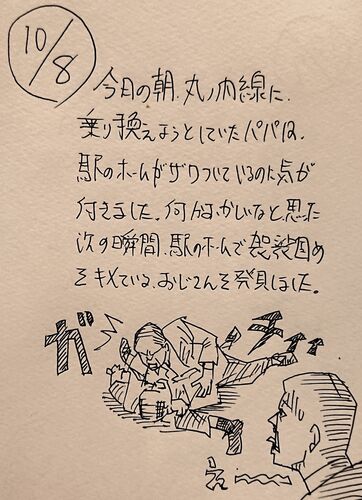 10/8
今日の朝、丸ノ内線に、
乗り換えようとしていたパパは、
駅のホームがザワついているのに気が
付きました。何んすかいなと、思た
次の瞬間、駅のホームで袈裟固め
をキメている、おじさんを発見しました。
ガ
ッチィィ
え〜